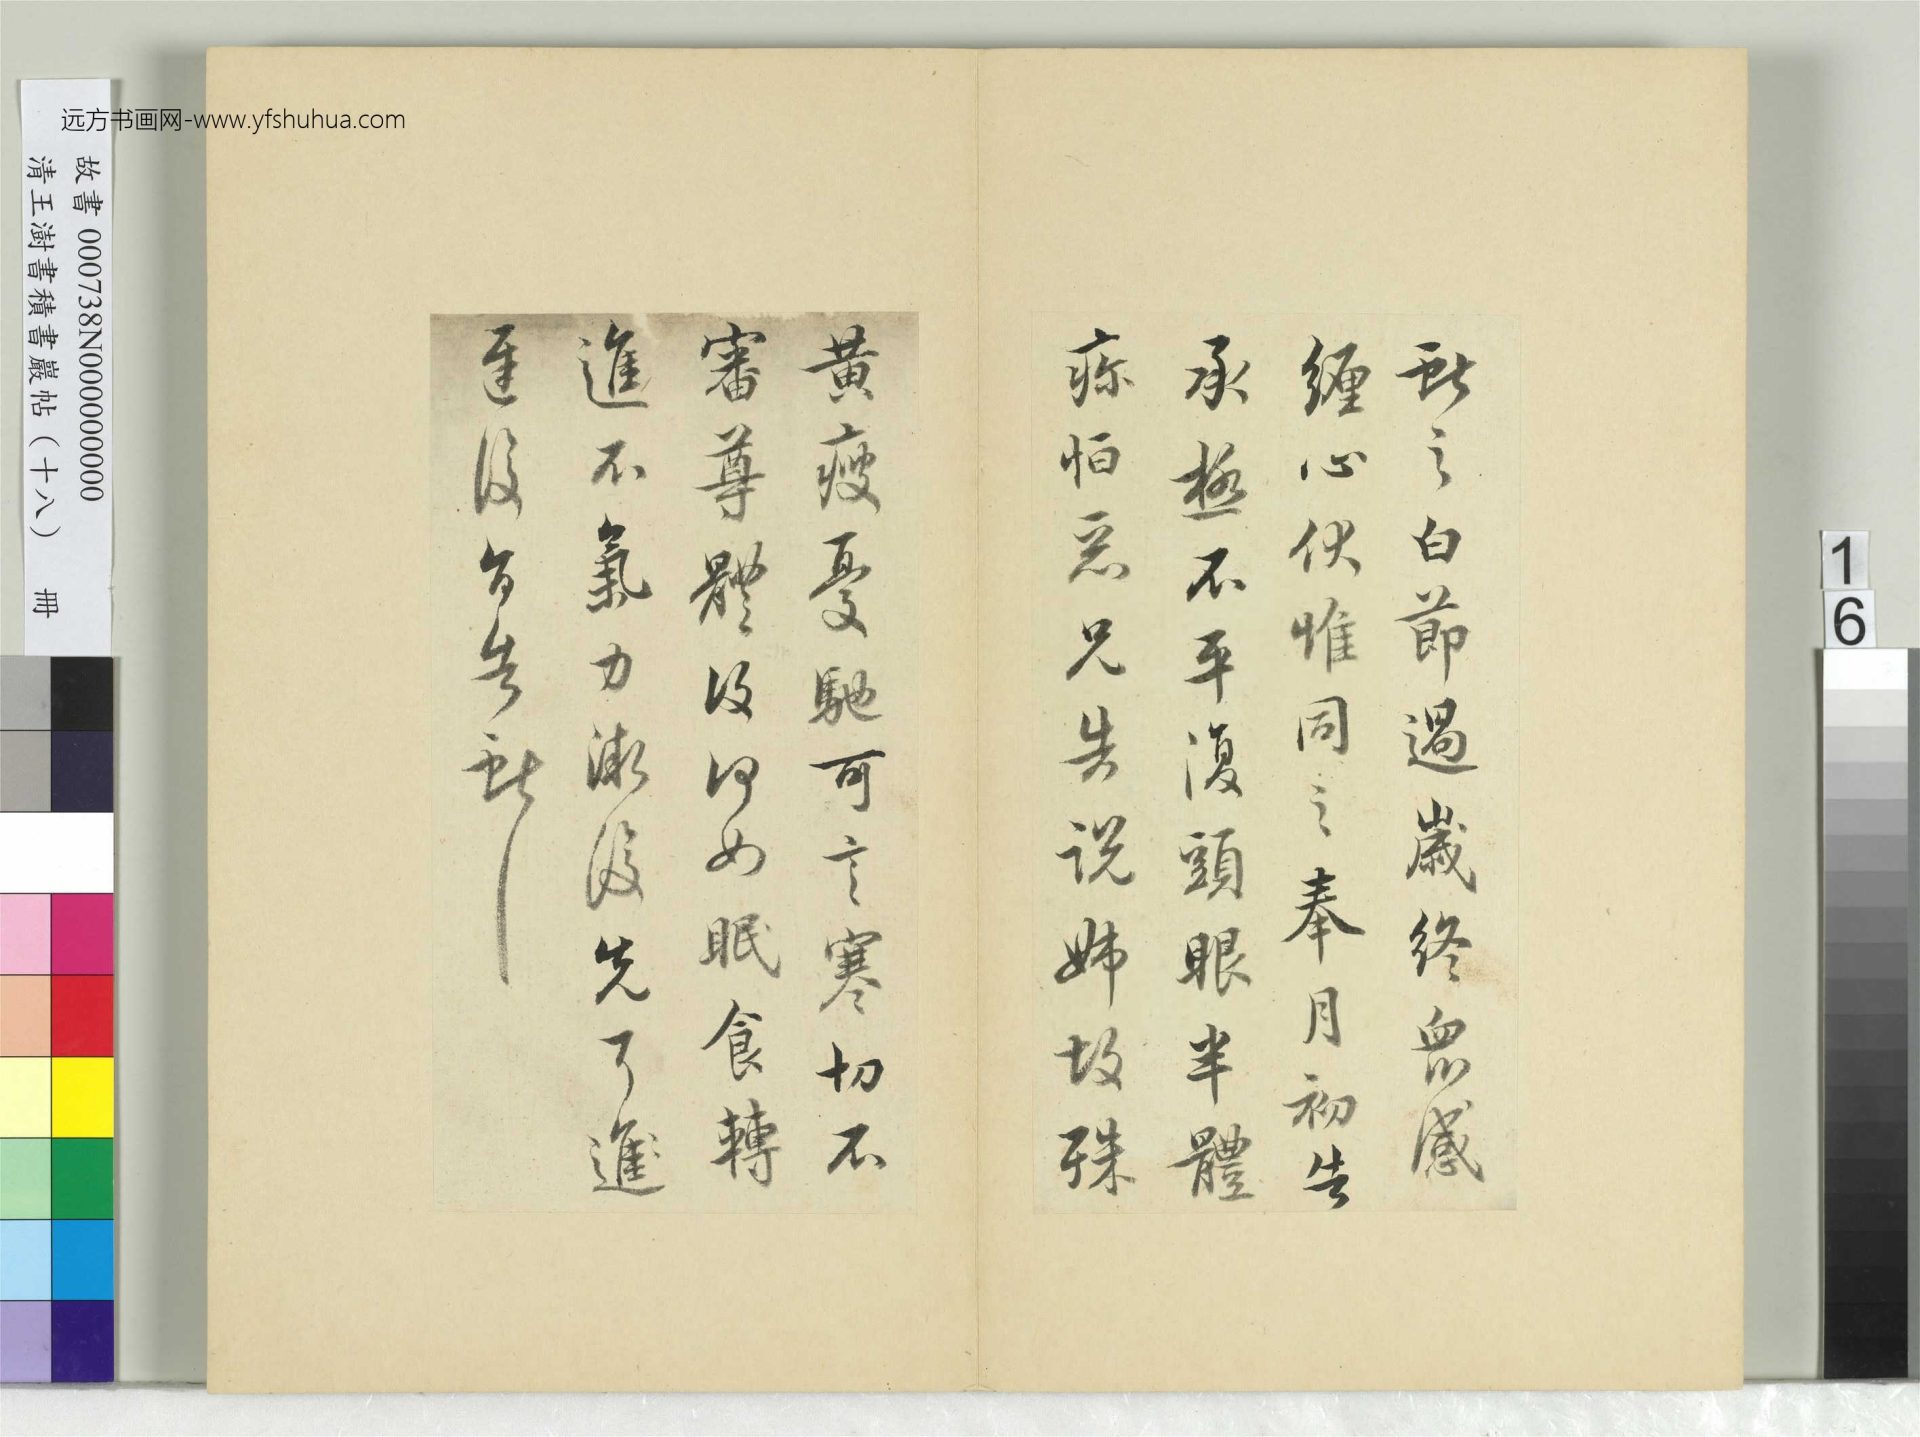 远方书画网-www.yfshuhua.com
故書 000738N000000000
清王澍書積書巖帖(十八) 冊
16
獻之白節過歲終眾感
纏心伏惟同之奉月初告
承極不平復頭眼半體
疼怕惡兄告說姊故殊
黃瘦憂馳可言寒切不
審尊體復何如眠食轉
進不氣力漸復先可進
復旨告獻